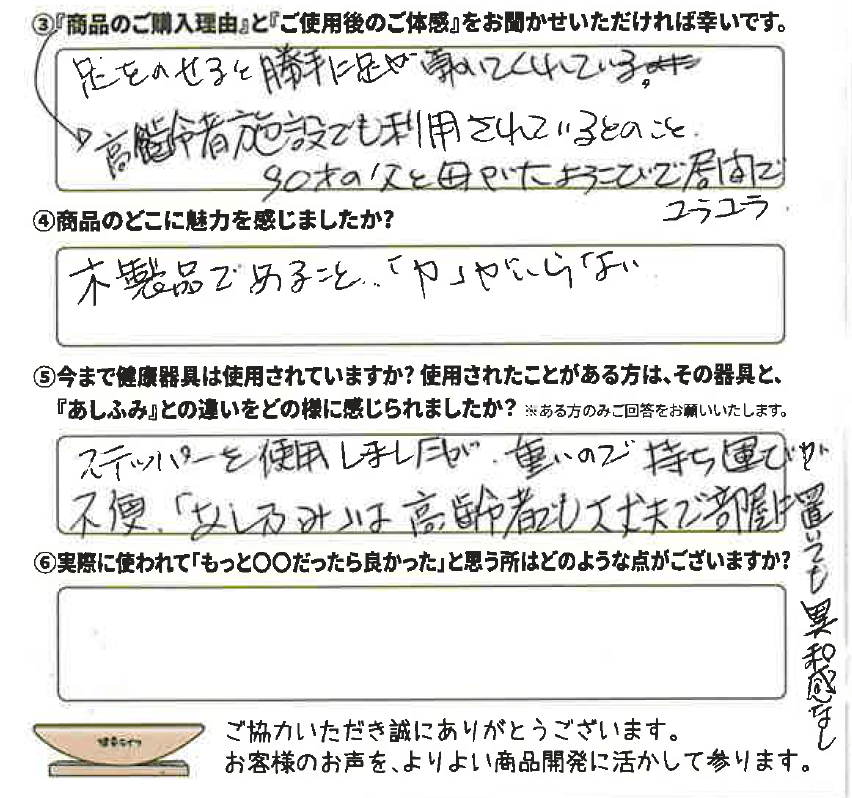 ③『商品のご購入理由』と『ご使用後のご体感』をお聞かせいただければ幸いです。
足をのせると勝手に足が動いてくれている。
高齢者施設でも利用されているとのこと.
90才の父と母がたよろこびで居間で
ユラユラ.
④商品のどこに魅力を感じましたか?
木製品であること、「力」がいらない
⑤今まで健康器具は使用されていますか? 使用されたことがある方は、その器具と、
『あしふみ』との違いをどの様に感じられましたか? ※ある方のみご回答をお願いいたします。
ステッパーを使用しましたが、重いので持ち運びが
不便、「あしふみ」は高齢者でも大丈夫で部屋に置いても異和感なし
⑥実際に使われて「もっと〇〇だったら良かった」と思う所はどのような点がございますか?
ご協力いただき誠にありがとうございます。
お客様のお声を、よりよい商品開発に活かして参ります。